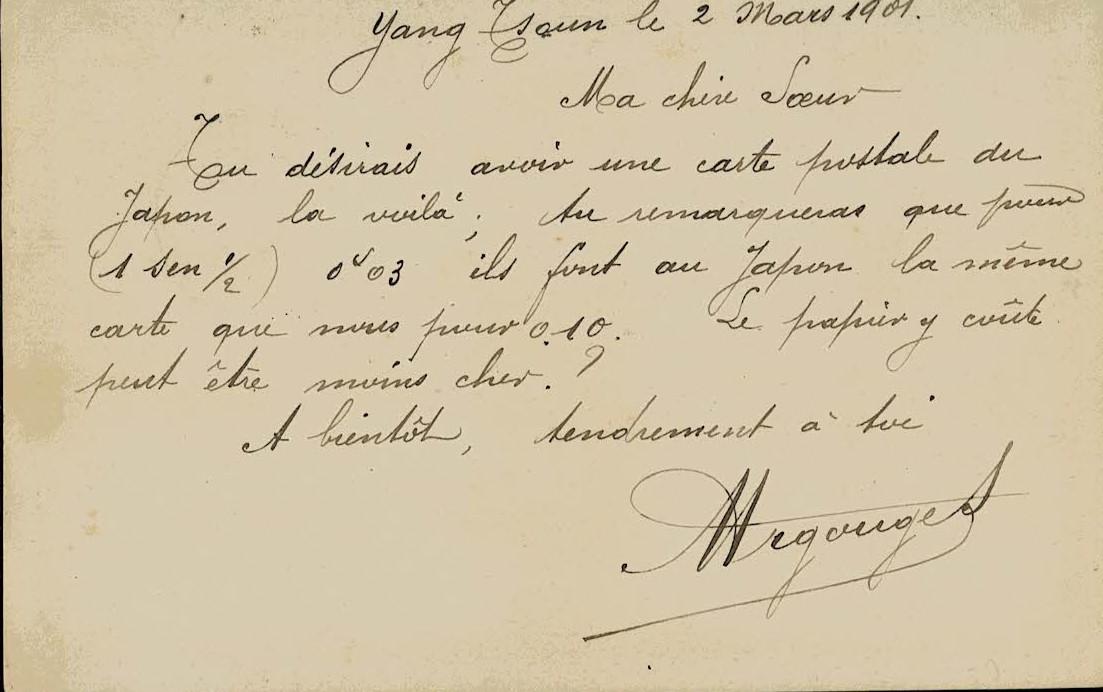 Yang Tsoun le 2 Mars 1901.
Ma chère Sœur
Tu désirais avoir une carte postale du
Japon, la voilà; tu remarqueras que pour
(1 sen 1/2) 0f03 ils font au Japon la même
carte que nous pour 0.10. Le papier y coûte
peut être moins cher.?
A bientôt, tendrement à toi